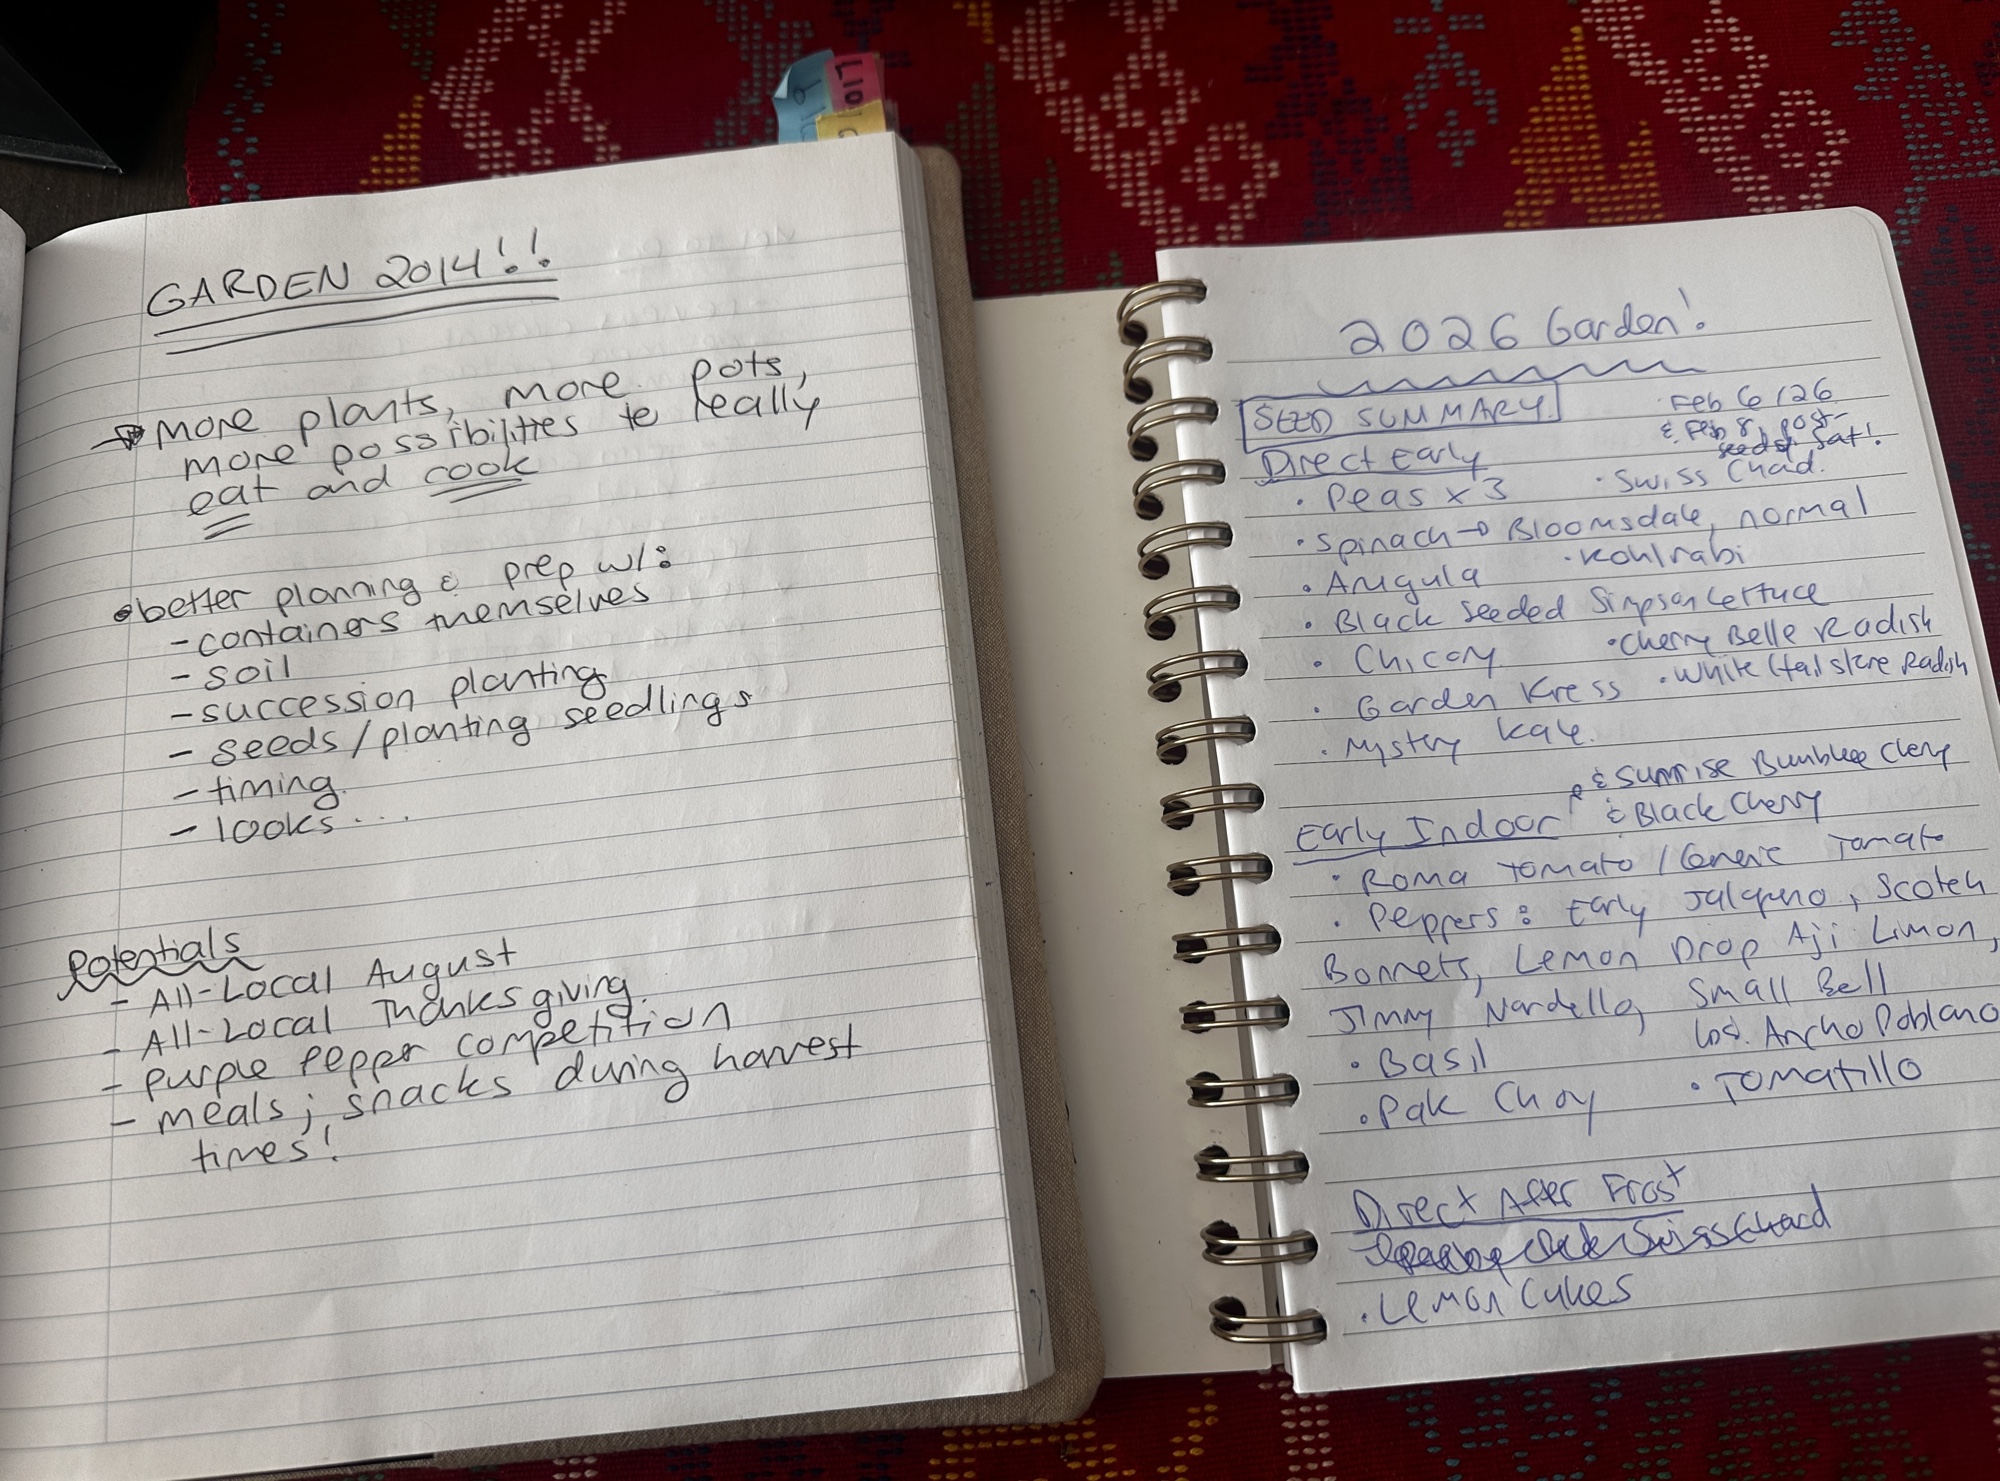 GARDEN 2014!!
more plants, more pots,
more possibilities to really
eat and cook
better planning & prep w/:
- containers themselves
- soil
- succession planting
- seeds/planting seedlings
- timing.
- looks...
Potentials
- All-Local August
- All-Local Thanksgiving.
- purple pepper competition
- meals; snacks during harvest
times!
2026 Garden!
SEED SUMMARY.
Feb 6/26
& Feb 8, post-
seedy Sat!
Direct Early
• Peas x 3 • Swiss Chad.
• Spinach → Bloomsdale, normal
• Arugula • Kohlrabi
• Black Seeded Simpson Lettuce
• Chicory • Cherry Belle Radish
• Garden Kress • White Radish
• Mystery Kale.
& Sunrise Bumblee Chery
Early Indoor & Black Cherry
• Roma Tomato / Generic Tomato
• Peppers: Early Jalapeno, Scotch
Bonnets, Lemon Drop Aji Limon,
Jimmy Nardello, Small Bell
• Basil Ancho Poblano
• Pak Choy • Tomatillo
Direct After Frost
Swiss Chard
• Lemon Cukes